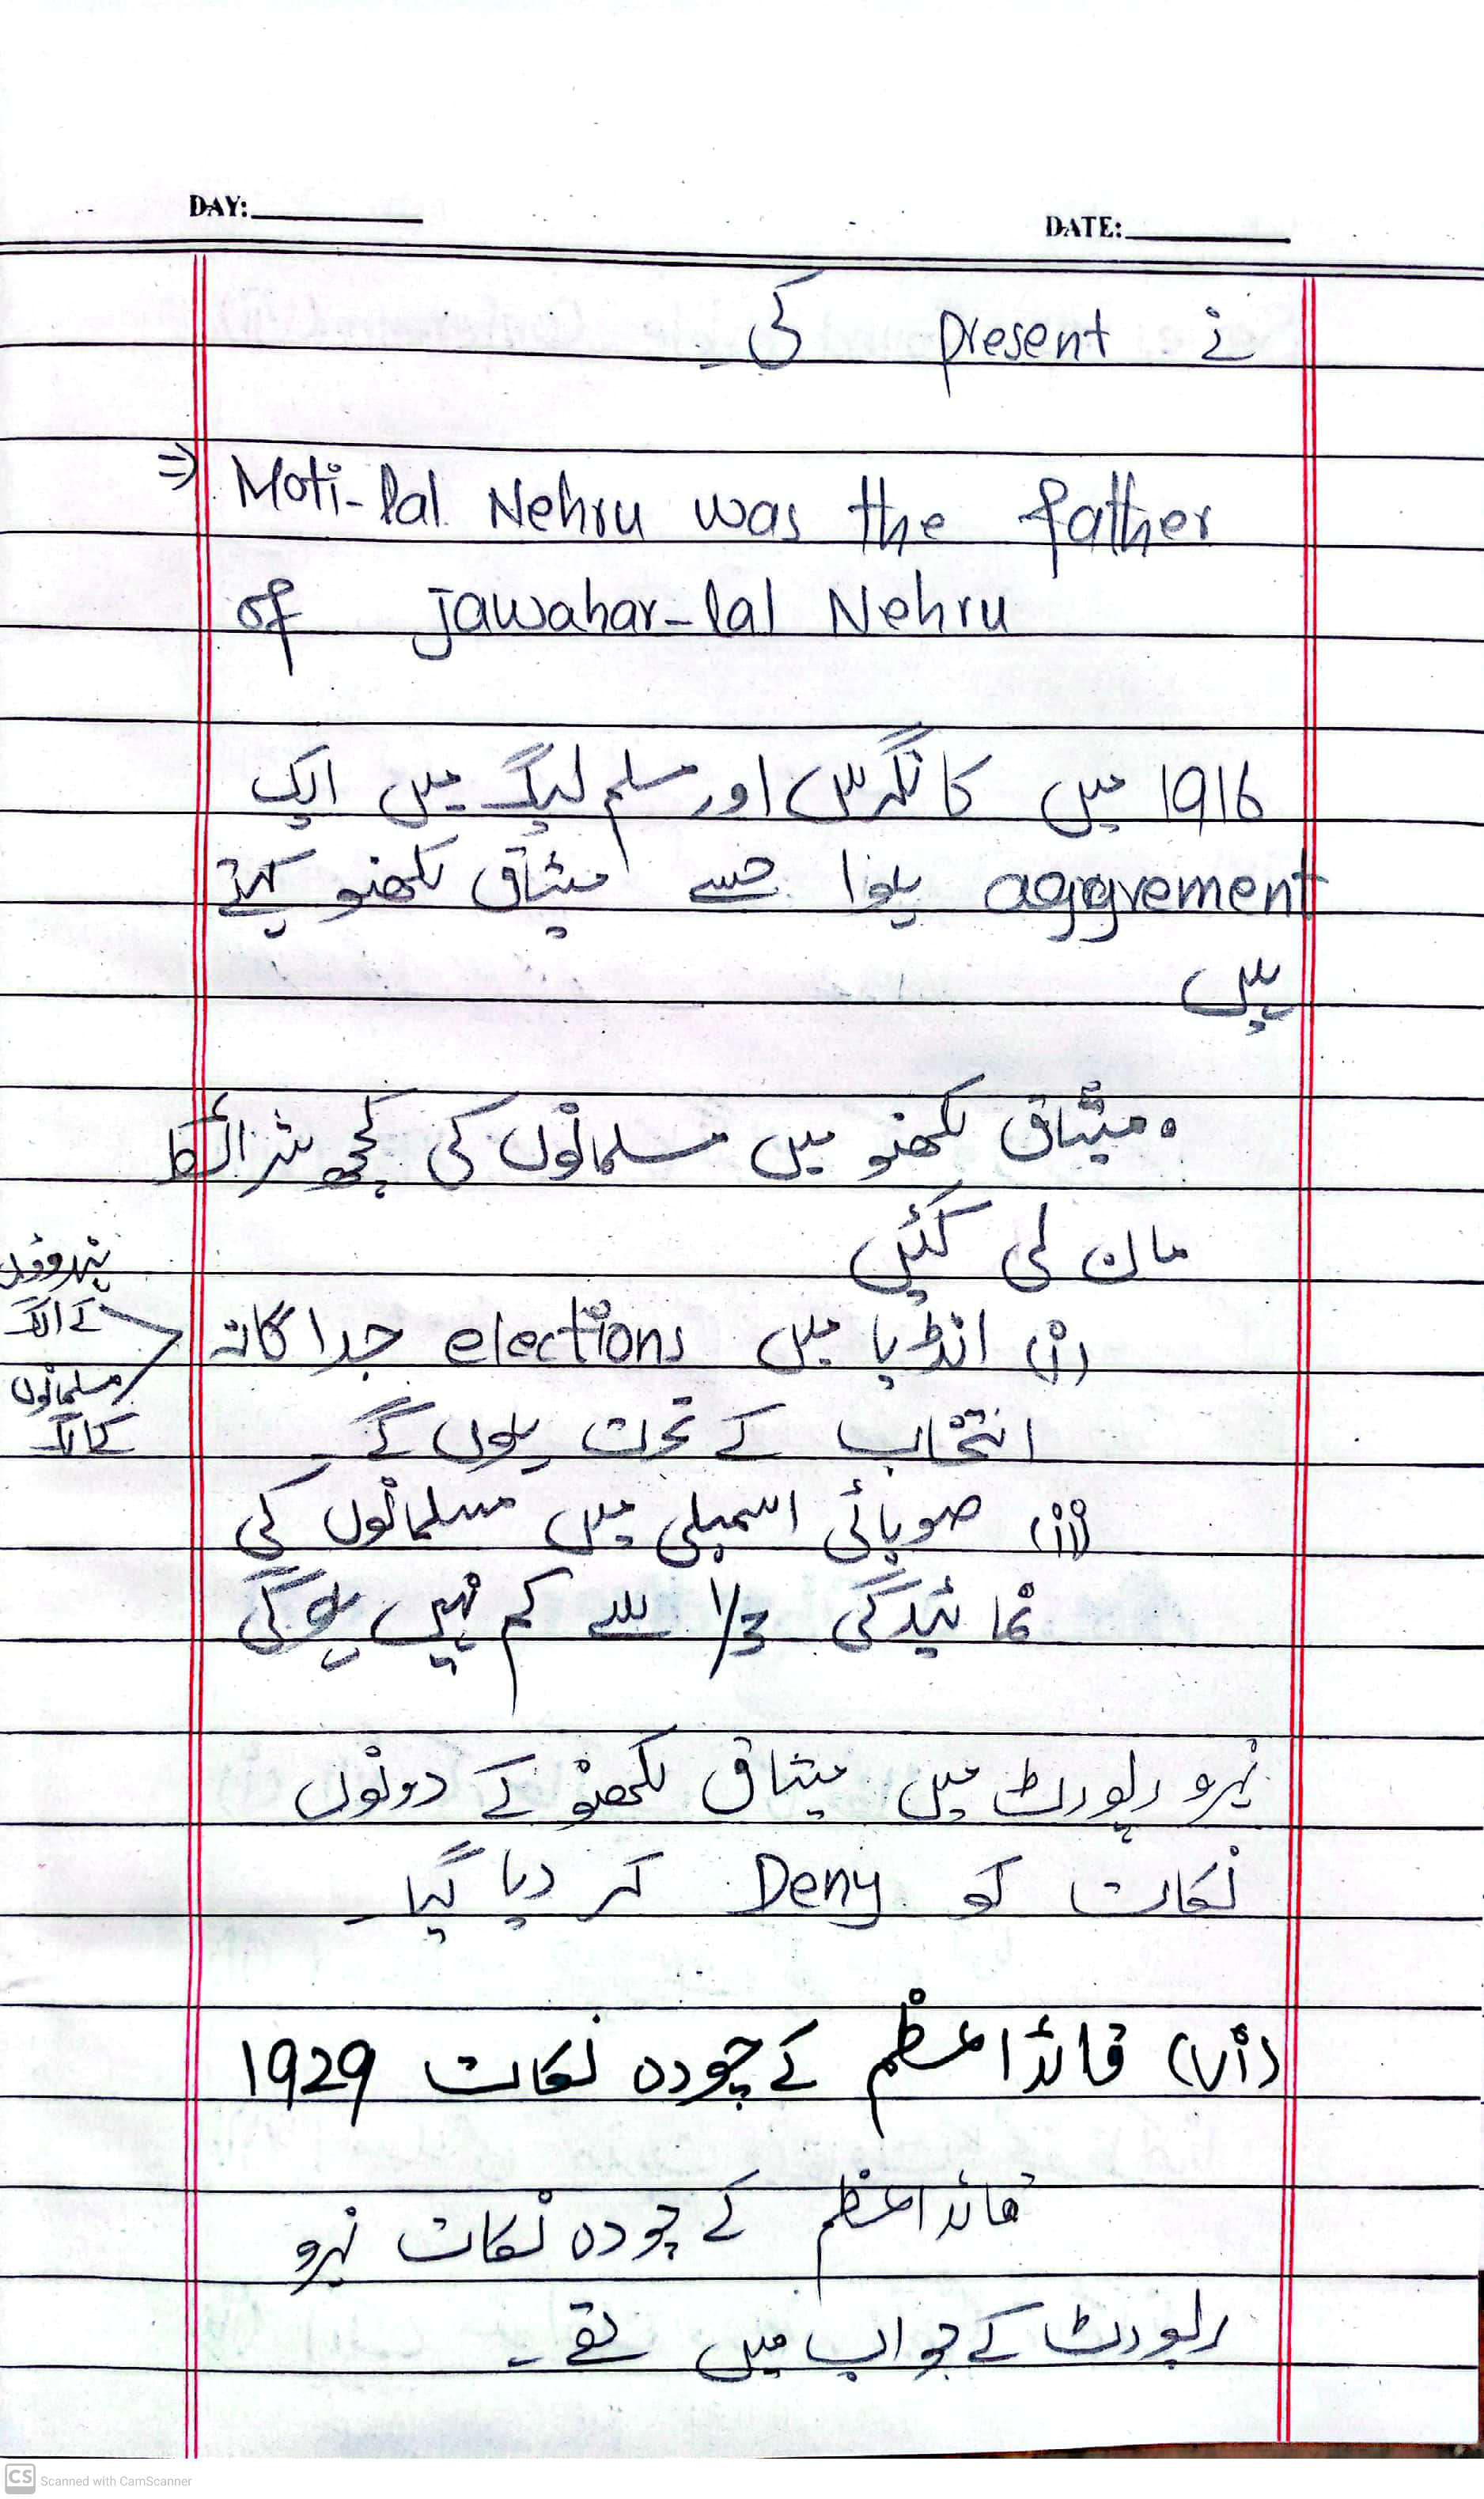 DAY:
DATE:
نے present کی۔
⇒ Moti-lal Nehru was the father
of Jawahar-lal Nehru
1916 میں کانگرس اور مسلم لیگ میں ایک
aggrement ہوا جسے میثاق لکھنو کہتے
ہیں
• میثاق لکھنو میں مسلمانوں کی کچھ شرائط
مان لی گئیں
(i) انڈیا میں elections جداگانہ
انتخاب کے تحت ہوں گے۔
ہندووں
کے الگ
مسلمانوں
کے الگ
(ii) صوبائی اسمبلی میں مسلمانوں کی
نمائیدگی 1/3 سے کم نہیں ہوگی
نہرو رپورٹ میں میثاق لکھنو کے دونوں
نکات کو Deny کر دیا گیا۔
(vi) قائداعظم کے چودہ نکات 1929
قائداعظم کے چودہ نکات نہرو
رپورٹ کے جواب میں تھے۔
CS Scanned with CamScanner